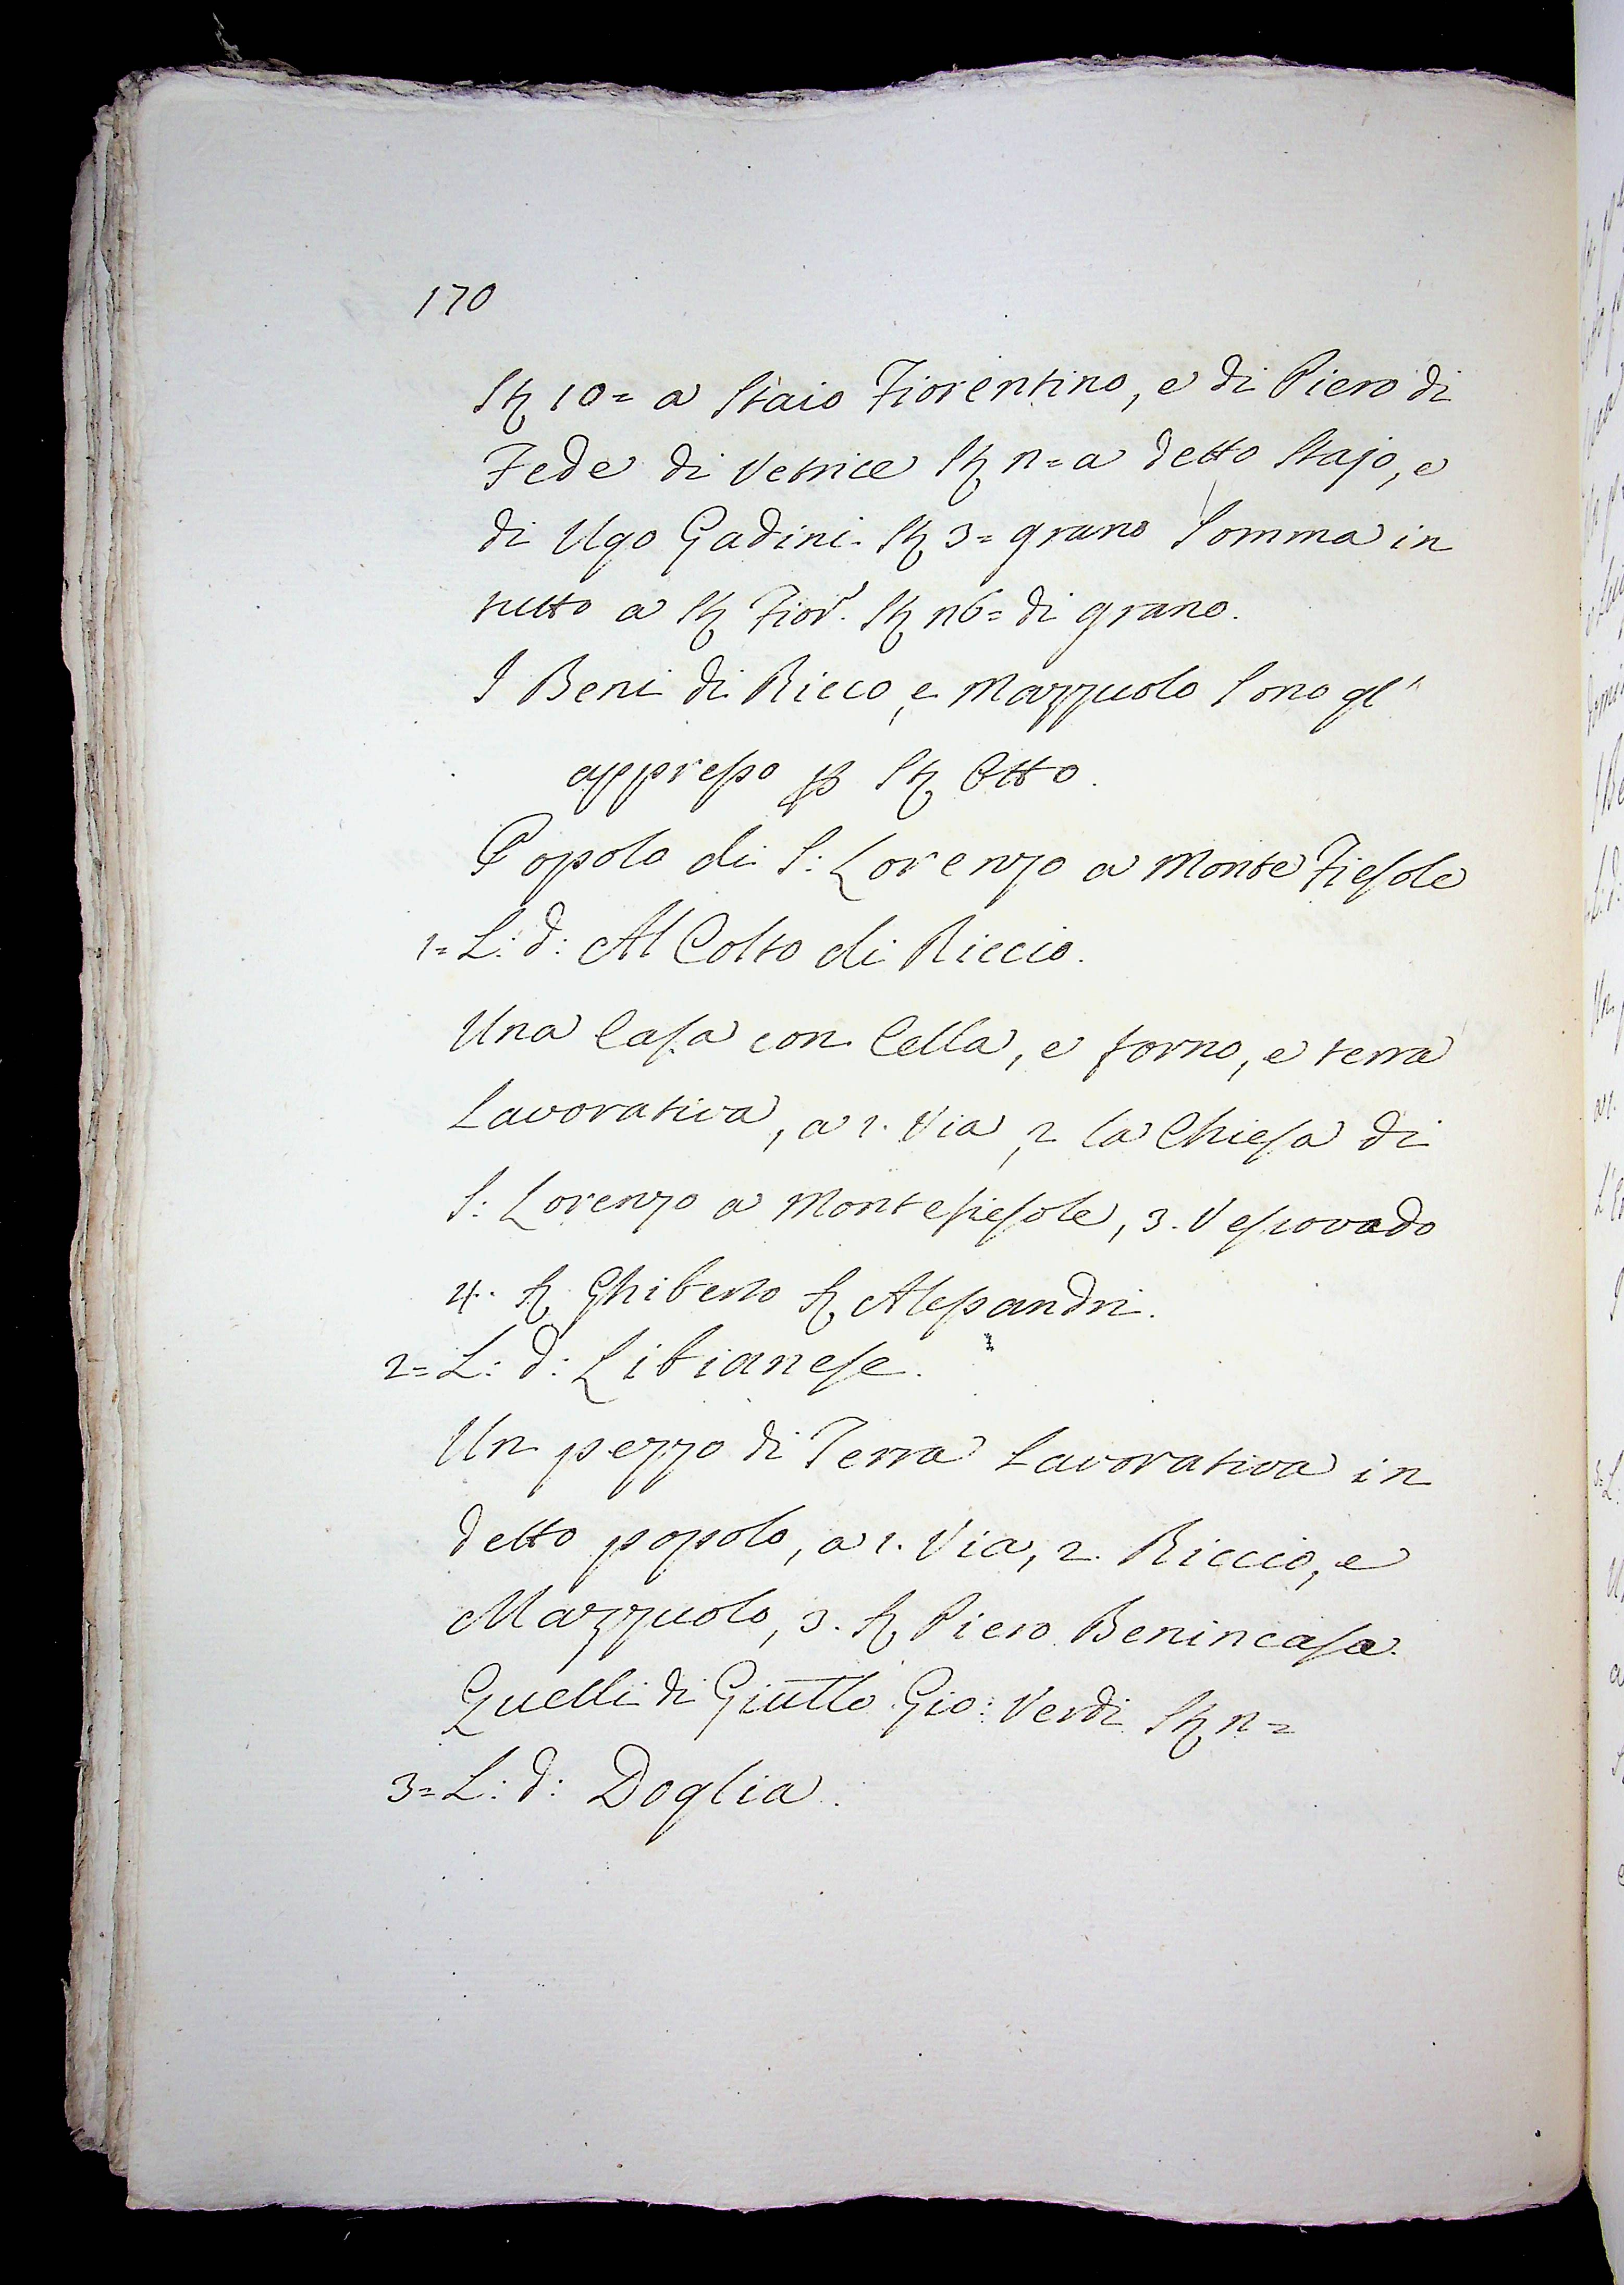 170
St 10= a Staio Fiorentino, e di Piero di
Fede di Vetrice St 12= a detto Stajo, e
di Ugo Gadini St 3= grano Somma in
tutto a St Fior. St 26= di grano.
I Beni di Ricco, e Mazzuolo Sono gl'
appresso p St Otto.
Popolo di S: Lorenzo a Monte Fiesole
1= L: d: Al Colto di Riccio.
Una Casa con Cella, e forno, e terra
Lavorativa, a 1. Via, 2 la Chiesa di
S: Lorenzo a Montefiesole, 3. Vescovado
4. Ghiberto Alessandri.
2= L: d: Libianese.
Un pezzo di Terra Lavorativa in
detto popolo, a 1. Via, 2. Riccio, e
Mazzuolo, 3. Piero Benincasa.
Quelli di Giutto Gio: Verdi St 2=
3= L: d: Doglia.